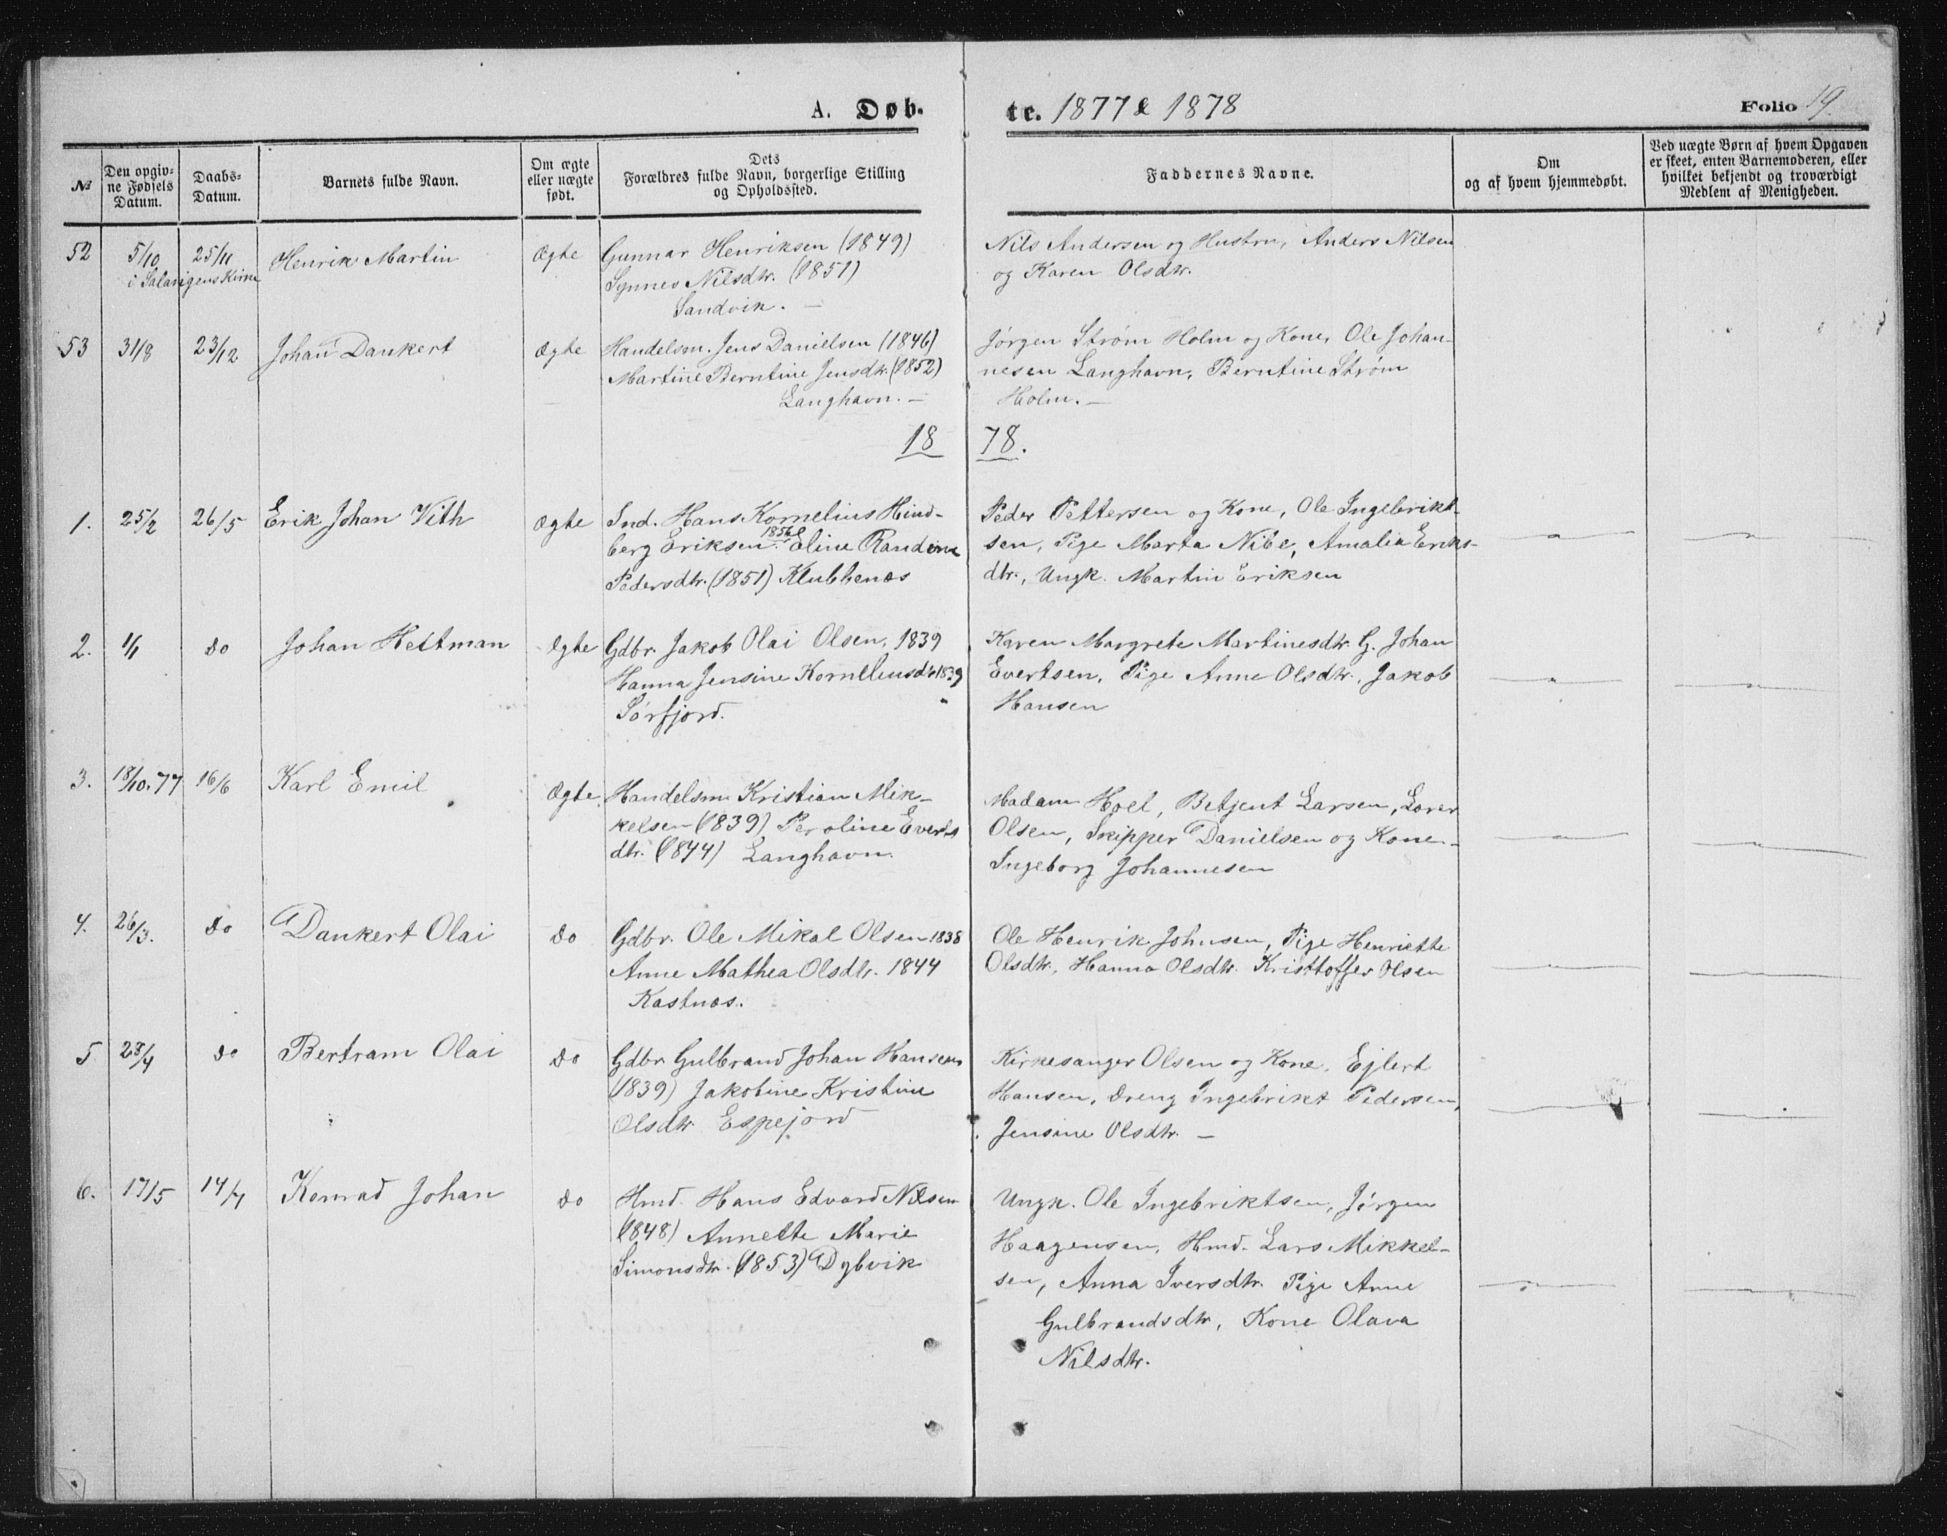 A. Døbte. 1877 & 1878
Folio 19.
№
Den opgivne Fødsels Datum.
Daabs-Datum.
Barnets fulde Navn.
Om ægte eller uægte født.
Dets Forældres fulde Navn, borgerlige Stilling og Opholdssted.
Faddernes Navne.
Om og af hvem hjemmedøbt.
Ved uægte Børn af hvem Opgaven er skeet, enten Barnemoderen, eller hvilket bekjendt og troværdigt Medlem af Menigheden.
52 5/10 25/11 Henrik Martin Ægte
i Salangens Kirke
Gunnar Henriksen (1849)
Synnev Nilsdtr. (1851)
Sandvik. —
Nils Andersen og Hustru, Anders Nilsen
og Karen Olsdtr.
53 31/8 23/12 Johan Dankert Ægte
Handelsm. Jens Danielsen (1846)
Martine Berntine Jensdtr. (1852)
Langhavn. —
Jørgen Strøm Holm og Kone, Ole Johan-
nesen Langhavn, Berntine Strøm
Holm. —
1878.
1. 25/2 26/5 Erik Johan Vith Ægte
Ind. Hans Kornelius Hind-
berg Eriksen 1856 Eline Randine
Pedersdtr. (1851) Klubbenæs
Peder Pettersen og Kone, Ole Ingebrikt-
sen, Pige Marta Nibe, Amalia Eriks-
dtr., Ungk. Martin Eriksen
2. 1/1 Do Johan Heitman Ægte
Gdbr. Jakob Olai Olsen, 1839
Hanna Jensine Korneliusdtr 1839
Sørfjord.
Karen Margrete Martinesdtr. G. Johan
Evertsen, Pige Anne Olsdtr., Jakob
Hansen
3. 18/10.77 16/6 Karl Emil Ægte
Handelsm Kristian Mik-
kelsen (1839) Peroline Everts
dtr. (1844) Langhavn.
Madam Hoel, Betjent Larsen,
Olsen, Skipper Danielsen og Kone
Ingeborg Johannesen
4. 26/3. Do Dankert Olai Do
Gdbr. Ole Mikal Olsen 1838
Anne Mathea Olsdtr. 1844
Kastnæs.
Ole Henrik Johnsen, Pige Henriette
Olsdtr, Hanna Olsdtr. Kristtoffer Olsen
5 28/4 Do Bertram Olai Do
Gdbr Gulbrand Johan Hansen
(1839) Jakobine Kristine
Olsdtr Espejord
Kirkesanger Olsen og Kone, Ejlert
Hansen, Dreng Ingebrikt Pedersen,
Jensine Olsdtr. —
6. 17/5 14/7 Konrad Johan Do
Hmd. Hans Edvard Nilsen
(1848) Annette Marie
Simonsdtr. (1853) Dybvik
Ungk. Ole Ingebriktsen, Jørgen
Haagensen, Hmd. Lars Mikkel-
sen, Anna Iversdtr. Pige Anne
Gulbrandsdtr, Kone Olava
Nilsdtr.